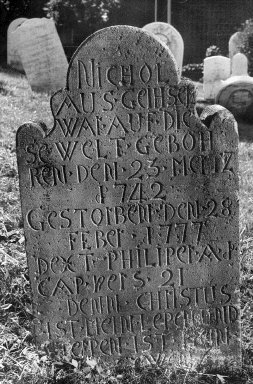 NICHOL
AUS GEIHSE
WAR AUF DIE
SE WELT GEBOH
REN DEN 23 MERTZ
1742
GESTORBEN DEN 28
FEBER 1777
DEXT PHILIPER A P
CAP VERS 21
DENN CHRISTUS
IST MEIN LEBEN UND
IST MEIN